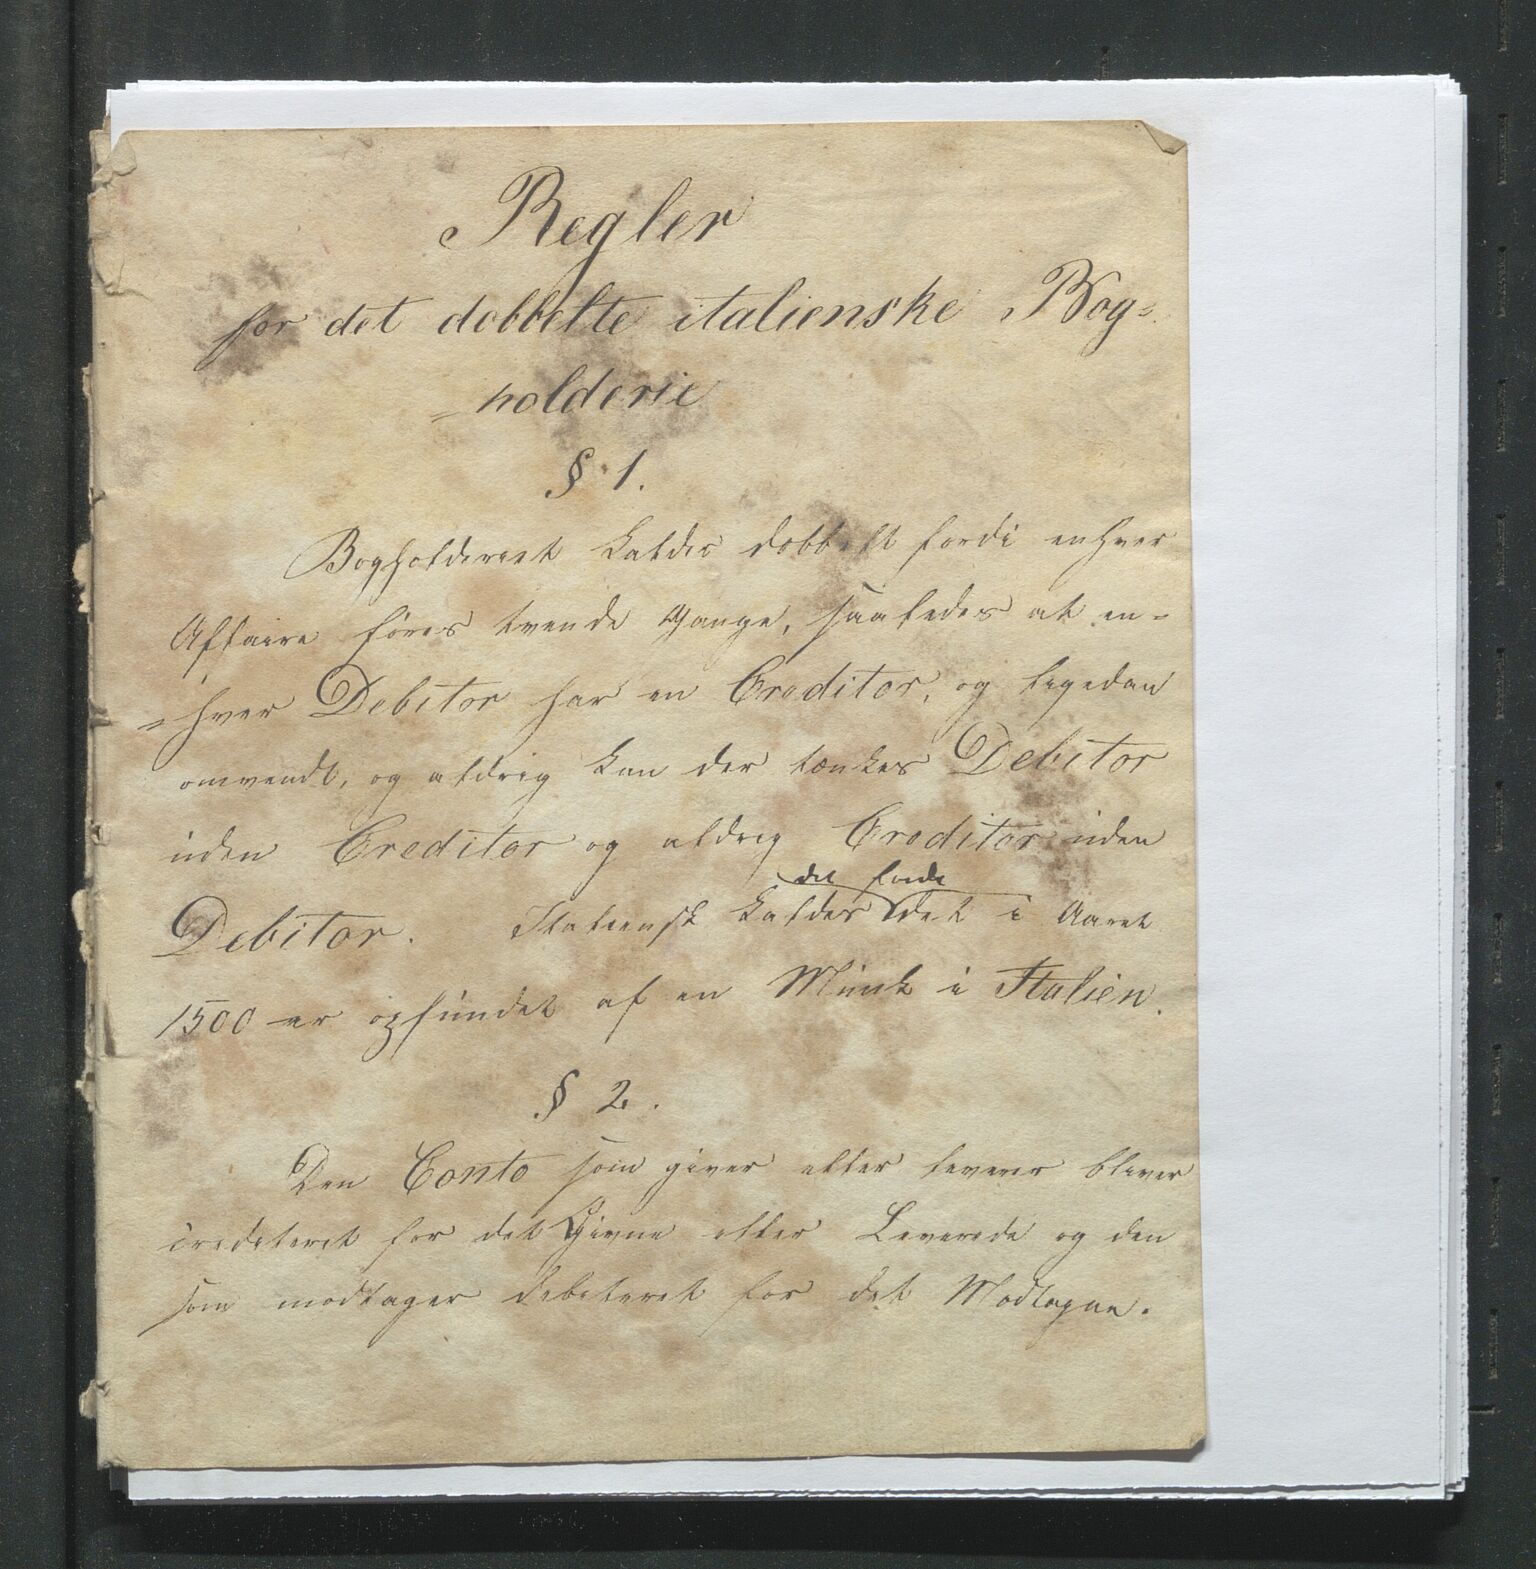 Regler
for det dobbelte italienske Bog=
=holderie
§ 1.
Bogholderiet kaldes dobbelt fordi enhver
Affaire føres tvende Gange, saaledes at en=
=hver Debitor har en Creditor, og ligedan
omvendt, og aldrig kan der tænkes Debitor
uden Creditor og aldrig Creditor uden
det fordi
Debitor. Italiensk kaldes det i Aaret
1500 er opfundet af en Munk i Italien.
§ 2.
Den Conto som giver eller leverer bliver
crediteret for det Givne eller Leverede og den
som modtager debiteret for det Modtagne.